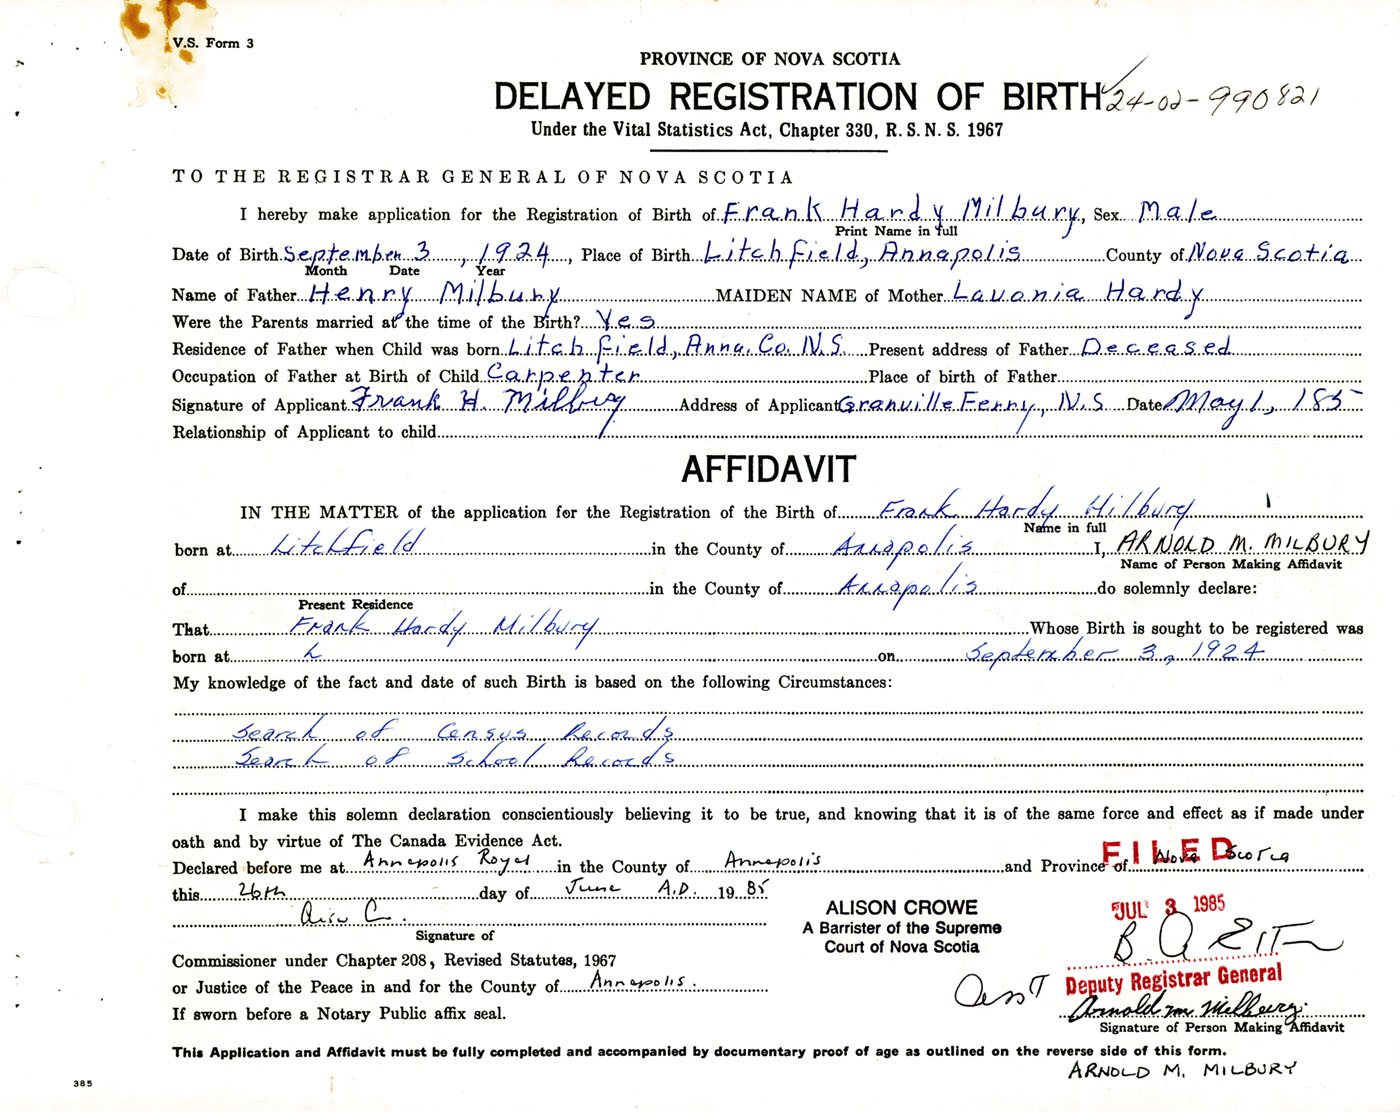 V.S. Form 3
PROVINCE OF NOVA SCOTIA
DELAYED REGISTRATION OF BIRTH 24-02-990821
Under the Vital Statistics Act, Chapter 330, R. S. N. S. 1967
TO THE REGISTRAR GENERAL OF NOVA SCOTIA
I hereby make application for the Registration of Birth of Frank Hardy Milbury, Sex Male
Print Name in full
Date of Birth September 3, 1924, Place of Birth Litchfield, Annapolis County of Nova Scotia
Month Date Year
Name of Father Henry Milbury MAIDEN NAME of Mother Lavonia Hardy
Were the Parents married at the time of the Birth? Yes
Residence of Father when Child was born Litchfield, Anna. Co. N.S. Present address of Father Deceased
Occupation of Father at Birth of Child Carpenter Place of birth of Father
Signature of Applicant Frank H. Milbury Address of Applicant Granville Ferry, N.S Date May 1, 185
Relationship of Applicant to child
AFFIDAVIT
IN THE MATTER of the application for the Registration of the Birth of Frank Hardy Milbury
Name in full
born at Litchfield in the County of Annapolis I, ARNOLD M. MILBURY
Name of Person Making Affidavit
of in the County of Annapolis do solemnly declare:
Present Residence
That Frank Hardy Milbury Whose Birth is sought to be registered was
born at L on September 3, 1924
My knowledge of the fact and date of such Birth is based on the following Circumstances:
Search of Census Records
Search of School Records
I make this solemn declaration conscientiously believing it to be true, and knowing that it is of the same force and effect as if made under
oath and by virtue of The Canada Evidence Act.
Declared before me at Annapolis Royal in the County of Annapolis and Province of Nova Scotia
FILED
this 26th day of June A.D. 19 85
JUL 3 1985
ALISON CROWE
A Barrister of the Supreme
Court of Nova Scotia
Signature of
Commissioner under Chapter 208, Revised Statutes, 1967
Asst Deputy Registrar General
or Justice of the Peace in and for the County of Annapolis.
Arnold M Milbury
If sworn before a Notary Public affix seal.
Signature of Person Making Affidavit
This Application and Affidavit must be fully completed and accompanied by documentary proof of age as outlined on the reverse side of this form.
ARNOLD M. MILBURY
385